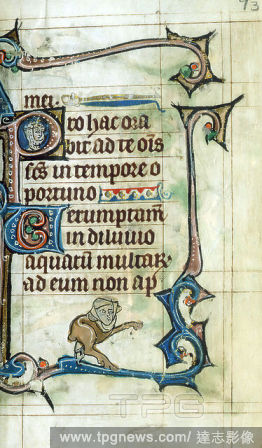 93
mei.
Pro hac ora
bit ad te oīs
scs in tempore o
portuno
Uerumptam̄
in diluuio
aquarū multar
ad eum non ap
TPG
www.tpgnews.com/ 達志影像